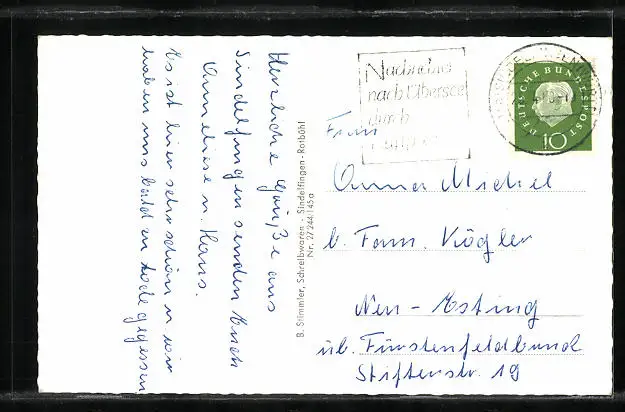 Herzliche Grüße aus
Sindelfingen senden Euch
Anneliese u. Hans.
Es ist hier sehr schön u wir
haben uns bald zu tode gegessen
B. Stimmler, Schreibwaren - Sindelfingen-Rotbühl
Nr. 2/244/145a
Nachrichten
nach Übersee
durch
DEUTSCHE BUNDESPOST
10
Frau
Anna Michel
b. Fam. Kögler
Neu-Esting
üb. Fürstenfeldbruck
Stifterstr. 19